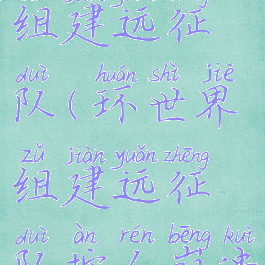 zǔ jiàn yuǎn zhēng
组建远征
duì huán shì jiè
队(环世界
zǔ jiàn yuǎn zhēng
组建远征
duì àn rén bēng kuì